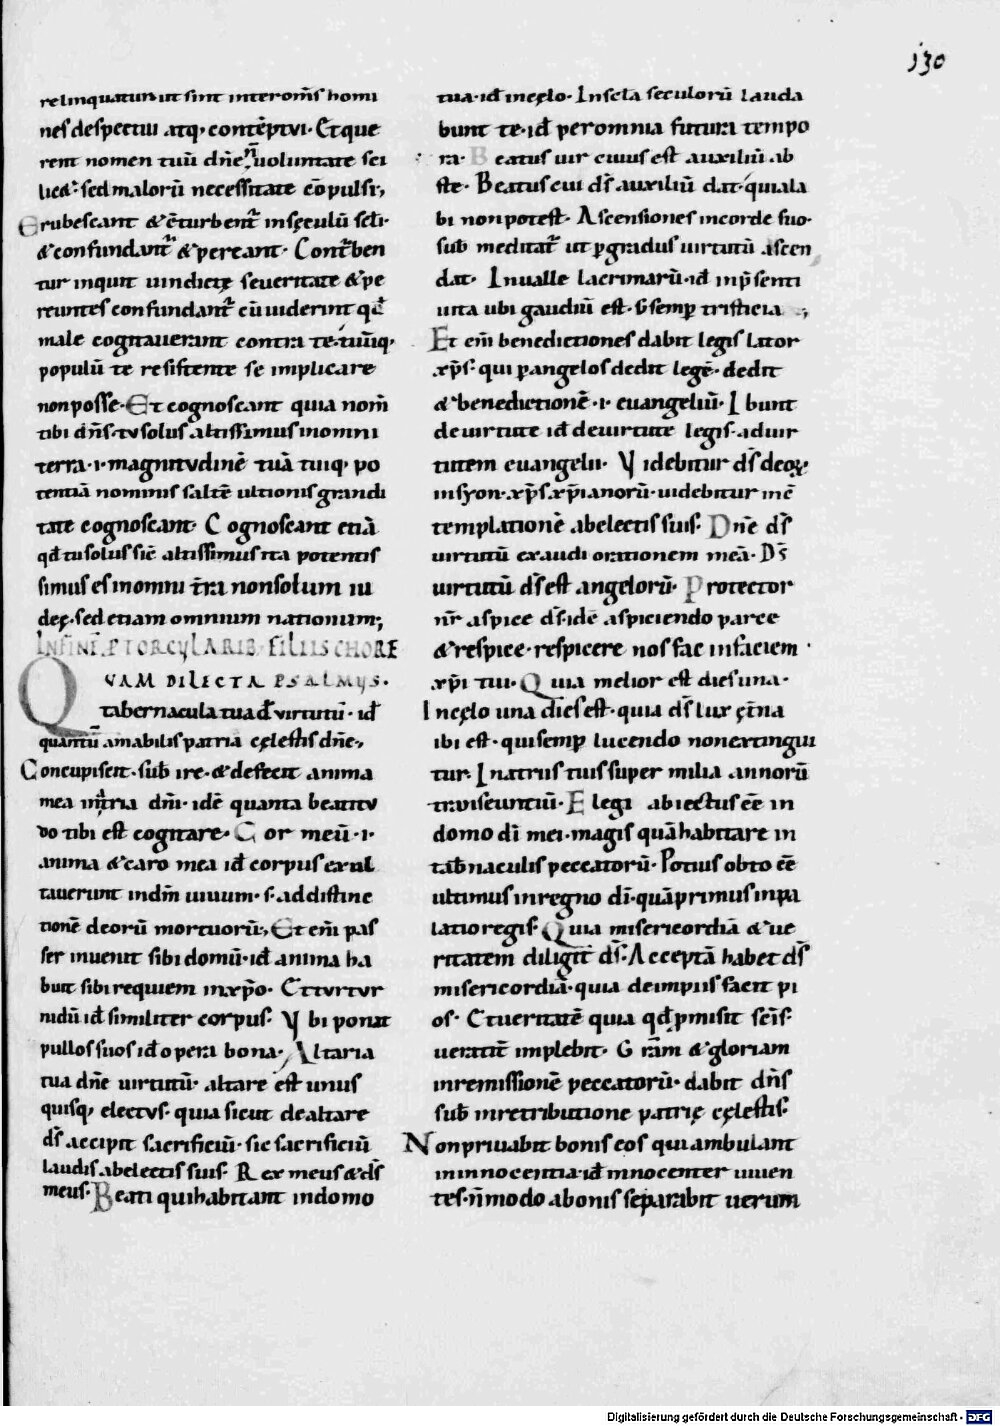 130
relinquatur ut sint inter om̅s homi
nes despectui atq; conte̅ptui· Et que
rent nomen tuu̅ dn̅e n̅ voluntate sci
licet· sed maloru̅ necessitate co̅pulsi;
Erubescant & c̅turbent̅ in sęculu̅ scl̅i·
& confundant̅ & pereant· Cont̅ben
tur inquit uindictę seueritate & pe
reuntes confundant̅ cu̅ uiderint qd̅
male cogitauerunt contra te· tuu̅q;
populu̅ te resistente se implicare
non posse· Et cognoscant quia nom̅
tibi dn̅s· tu solus altissimus in omni
terra· i· magnitudine̅ tua̅ tuiq; po
tentia̅ nominis salte̅ ultionis grandi
tate cognoscant· Cognoscant etia̅
qd̅ tu solus sic̅ altissimus ita potentis
simus es in omni t̅ra non solum iu
dęę· sed etiam omnium nationum;
IN FINE̅ P TORCULARIB· FILIIS CHORE
QVAM DILECTA PSALMUS·
tabernacula tua d̅ virtutu̅· id̅
quantu̅ amabilis patria cęlestis dn̅e;
Concupiscit· sub̅ ire· & defecit anima
mea in at̅ria dn̅i· ide̅ quanta beatitu
do tibi est cogitare· Cor meu̅· i·
anima & caro mea id̅ corpus exul
tauerunt in dm̅ uiuum· s· ad distinc
tione̅ deoru̅ mortuoru̅; Et eni̅ pas
ser inuenit sibi domu̅· id̅ anima ha
buit sibi requiem in xp̅o· Et turtur
nidu̅ id̅ similiter corpus· Vbi ponat
pullos suos id̅ opera bona· Altaria
tua dn̅e uirtutu̅· altare est unus
quisq; electus· quia sicut de altare
ds̅ accipit sacrificiu̅· sic sacrificiu̅
laudis ab electis suis· Rex meus & ds̅
meus· Beati qui habitant in domo
tua· id̅ in cęlo· In scl̅a seculoru̅ lauda
bunt te· id̅ per omnia futura tempo
ra· Beatus uir cuius est auxiliu̅ ab
ste· Beatus cui ds̅ auxiliu̅ dat· quia la
bi non potest· Ascensiones in corde suo·
sub̅ meditat̅ ut p̱ gradus uirtutu̅ ascen
dat· In ualle lacrimaru̅· id̅ in p̅senti
uita ubi gaudiu̅ est· s̅ semp̱ tristicia;
Et eni̅ benedictiones dabit legis lator
xp̅s· qui p̱ angelos dedit lege̅· dedit
& benedictione̅· i· euangeliu̅· Ibunt
de uirtute id̅ de uirtute legis· ad uir
tutem euangelii· Videbitur ds̅ deoꝝ
in syon· xp̅s xp̅ianoru̅· uidebitur in c̅
templatione̅ ab electis suis· Dn̅e ds̅
uirtutu̅ exaudi orationem mea̅· Ds̅
uirtutu̅ ds̅ est angeloru̅· Protector
nr̅ aspice ds̅· ide̅ aspiciendo parce
& respice· respicere nos fac in faciem
xp̅i tui· Quia melior est dies una·
In cęlo una dies est· quia ds̅ lux ęt̅na
ibi est· qui semp̱ lucendo non extingui
tur· In atriis tuis super milia annoru̅
transeuntiu̅· Elegi abiectus ee̅ in
domo di̅ mei· magis qua̅ habitare in
tab̅naculis peccatoru̅· Potius obto ee̅
ultimus in regno di̅· qua̅ primus in pa
latio regis· Quia misericordia̅ & ue
ritatem diligit ds̅· Accepta̅ habet ds̅
misericordia̅· quia de impiis facit pi
os· Et ueritate̅ quia qd̅ p̱misit sc̅is·
ueratit̅ implebit· Gra̅m & gloriam
in remissione̅ peccatoru̅· dabit dn̅s
sub̅ in retributione patrię cęlestis·
Non priuabit bonis eos qui ambulant
in innocentia· id̅ innocenter uiuen
tes· n̅ modo a bonis separabit uerum
Digitalisierung gefördert durch die Deutsche Forschungsgemeinschaft - DFG